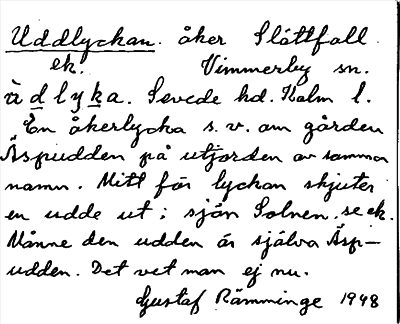 Uddlyckan. åker Slåttfall
ek. Vimmerby sn.
ùdlyka. Sevede hd. Kalm l.
En åkerlycka s.v. om gården
Äspudden på utjorden av samma
namn. Mitt för lyckan skjuter
en udde ut i sjön Solnen, se ek.
Månne den udden är själva Äsp-
udden. Det vet man ej nu.
Gustaf Rämminge 1948